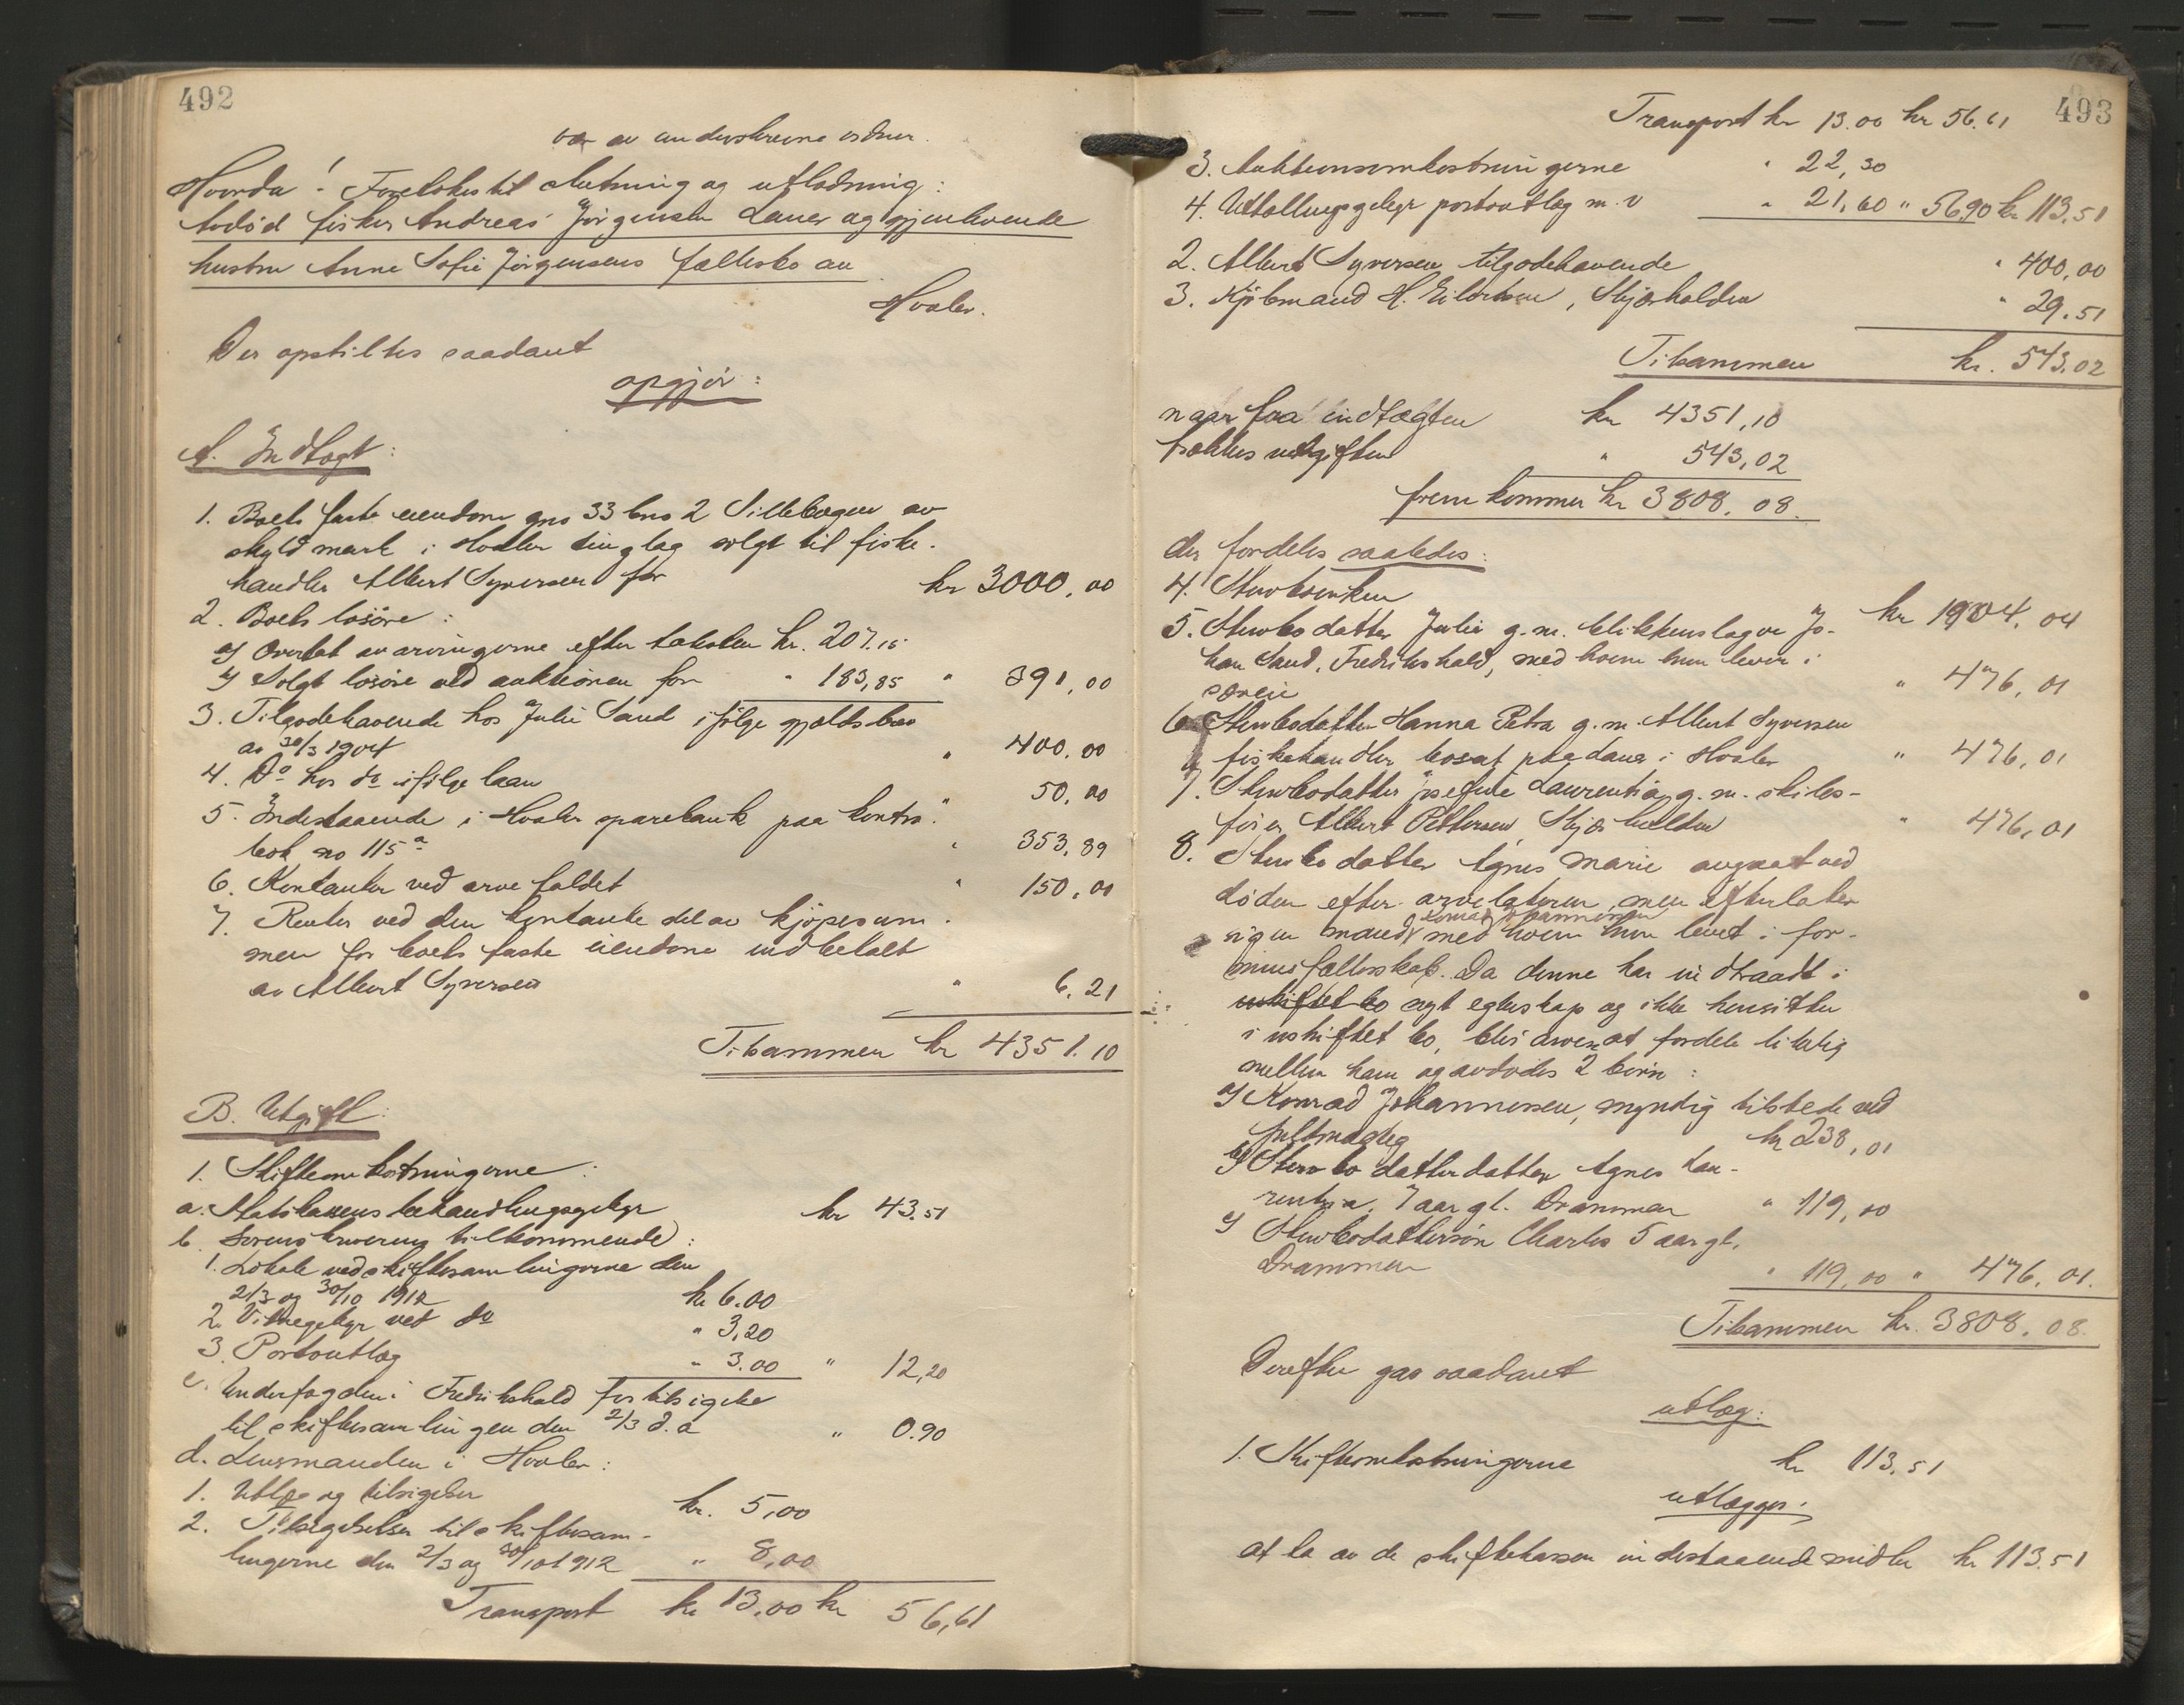 492
var av underskrevne ordner.
Hvorda! Foretokes til slutning og utlodning:
Avdød fisker Andreas Jörgensen Lauer og gjenlevende
hustru Anne Sofie Jörgensens fællesbo av
Hvaler.
Der opstiltes saadant
opgjör:
A. Indtægt:
1. Boets faste eiendom gno 33 bno 2 Sillebogen av
skyld mark i Hvaler tinglag solgt til fiske-
handler Albert Syversen for kr 3000,00
2. Boets lösöre:
a) Overlat av arvingerne efter taksten kr. 207.15
b) Solgt lösöre ved auktionen for " 183,85 " 391,00
3. Tilgodehavende hos Julie Sand ifölge gjældsbrev
av 30/3 1904 " 400,00
4. Do hos do ifölge laan " 50,00
5. Indestaaende i Hvaler sparebank paa kontra-
bok no 115a " 353,89
6. Kontanter ved arvefaldet " 150,00
7. Renter ved den kontante del av kjöpesum-
men for boets faste eiendom indbetalt
av Albert Syversen " 6,21
Tilsammen kr 4351.10
B. Utgift:
1. Skifteomkostningerne:
a. Statskassens behandlingsgebyr kr 43.51
b. Sorenskriveren tilkommende:
1. Lokale ved skiftesamlingerne den
2/3 og 30/10 1912 kr 6.00
2. Vitnegebyr ved do " 3,20
3. Portoutlæg " 3.00 " 12,20
c. Underfogden i Fredrikshald for tilsigelse
til skiftesamlingen den 2/3 d.a " 0.90
d. Lensmanden i Hvaler:
1. Utlæg og tilsigelser kr. 5,00
2. Tilsigelser til skiftesam-
lingerne den 2/3 og 30/10 1912 " 8,00
Transport kr 13,00 kr 56,61
493
Transport kr 13.00 kr 56.61
3. Auktionsomkostningerne " 22,30
4. Utlodlings gebyr portoutlæg m.v " 21,60 " 56,90 kr 113,51
2. Albert Syversen tilgodehavende " 400,00
3. Kjöbmand H. Eilertsen, Skjærhalden " 29.51
Tilsammen kr. 543.02
naar fra indtægten kr 4351,10
trækkes utgiften " 543,02
fremkommer kr 3808.08.
der fordeles saaledes:
4. Stervboenken kr 1904.04
5. Stervbodatter Julie g.m. blikkenslager Jo-
han Sand, Fredrikshald, med hvem hun lever i
særeie " 476,01
6. Stervbodatter Hanna Petra g.m. Albert Syversen
fiskehandler bosat paa Lauer i Hvaler " 476,01
7. Stervbodatter Josefine Laurentia g.m. skibs-
förer Albert Pettersen Skjærhalden " 476,01
8. Stervbodatter Agnes Marie avgaat ved
döden efter arveladeren, men efterlater
Konrad Johannessen
sig en mand med hvem hun levet i for-
muesfællesskab. Da denne har indtraadt i
uskiftet bo nyt egteskap og ikke hensitter
i uskiftet bo, blir arven at fordele likelig
mellem ham og avdödes 2 börn:
a) Konrad Johannessen, myndig tilstede ved
fuldmægtig kr 238,01
b) Stervbodatterdatter Agnes Lau-
rentia, 7 aar gl. Drammen " 119,00
c) Stervbodattersön Charles 5 aar gl.
Drammen " 119,00 " 476,01.
Tilsammen kr. 3808.08.
Derefter gav saadant
utlæg:
1. Skifteomkostningerne kr 113.51
utlægges:
at ta av de i skiftekassen indestaaende midler kr 113.51